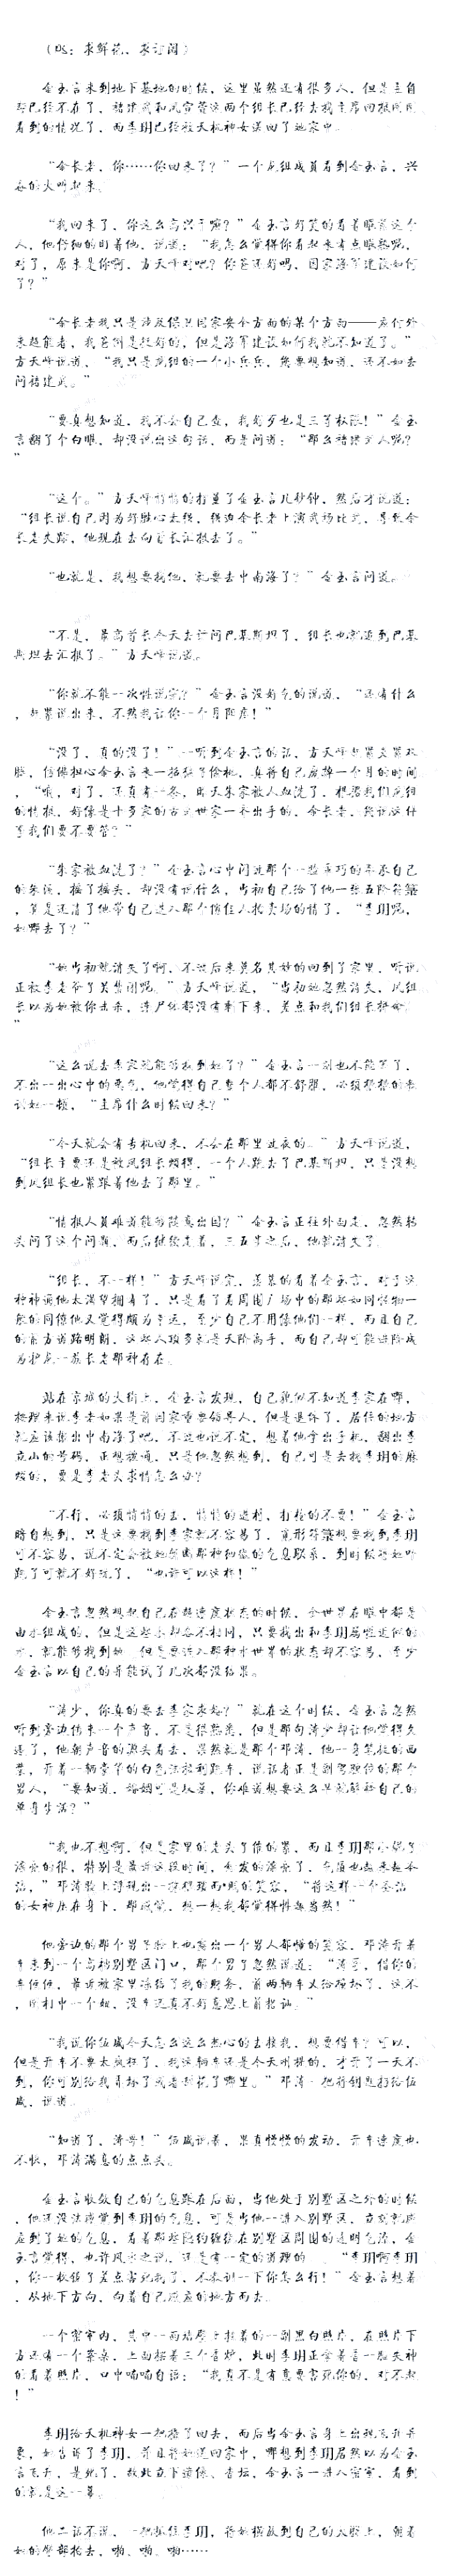 （PS：求鲜花、求订阅）
金玉言来到地下基地的时候，这里虽然还有很多人，但是主角
看到的情况了，而李玥已经被天机神女送回了她家中。
“金长老，你……你回来了？”一个龙组成员看到金玉言，兴
奋的大叫起来。
“我回来了，你这么高兴干嘛？”金玉言好笑的看着眼前这个
人，他仔细的盯着他，说道：“我怎么觉得你看起来有点眼熟呢，
对了，原来是你啊，方天峰对吧？你爸还好吗，国家海军建设如何
了？”
“金长老我只是涉及保卫国家安全方面的某个方面——应付外
来超能者，我爸倒是挺好的，但是海军建设如何我就不知道了。”
方天峰说道，“我只是龙组的一个小兵兵，您要想知道，还不如去
问褚建武。”
“要真想知道，我不会自己查，我好歹也是三等权限！”金玉
言翻了个白眼，却没说出这句话，而是问道：“那么褚建武人呢？
”
“这个。”方天峰悄悄的打量了金玉言几秒钟，然后才说道：
“组长说自己因为好胜心太强，强迫金长老上演武场比武，导致金
长老失踪，他现在去向首长汇报去了。”
“也就是，我想要找他，就要去中南海了？”金玉言问道。
“不是，最高首长今天去访问巴基斯坦了，组长也就追到巴基
斯坦去汇报了。”方天峰说道。
“你就不能一次性说完？”金玉言没好气的说道，“还有什么
，赶紧说出来，不然我让你一个月阳痿！”
“朱家被血洗了？”金玉言心中闪过那个一脸乖巧的寻求自己
的朱谈，摇了摇头，却没有说什么，当初自己给了他一张五阶符箓
，算是还清了他带自己进入那个修佳人拍卖场的情了，“李玥呢，
她哪去了？”
“她当初就消失了啊，不过后来莫名其妙的回到了家里，听说
正被李老爷子关禁闭呢。”方天峰说道，“当初她忽然消失，凤组
长以为她被你击杀，连尸体都没有剩下来，差点和我们组长拼命。
”
“这么说去李家就能够找到她了？”金玉言一刻也不能等了，
不出一出心中的恶气，他觉得自己整个人都不舒服，必须狠狠的教
训她一顿，“主席什么时候回来？”
“今天就会有专机回来，不会在那里过夜的。”方天峰说道，
“组长主要还是被凤组长烦得，一个人跑去了巴基斯坦，只是没想
到凤组长也紧跟着他去了那里。”
“情报人员难道能够随意出国？”金玉言正往外面走，忽然转
头问了这个问题，而后继续走着，三五步之后，他就消失了。
“组长，不一样！”方天峰说完，羡慕的看着金玉言，对于这
种神通他太渴望拥有了，只是看了看周围广场中的那些如同怪物一
般的同僚他又觉得颇为幸运，至少自己不用像他们一样，而且自己
的前方道路明朗，这些人顶多就是天阶高手，而自己却可能进阶成
为护龙一族长老那种存在。
站在京城的大街上，金玉言发现，自己貌似不知道李家在哪，
按理来说李老如果是前国家重要领导人，但是退休了，居住的地方
就应该搬出中南海了吧，不过也说不定，想着他拿出手机，翻出李
立山的号码，正想拨通，只是他忽然想到，自己可是去找李玥的麻
烦的，要是李老头求情怎么办？
“不行，必须悄悄的去，悄悄的进村，打枪的不要！”金玉言
暗自想到，只是这要找到李家就不容易了，寻形符箓想要找到李玥
可不容易，说不定会被她斩断那种细微的气息联系，到时候将她吓
跑了可就不好玩了，“也许可以这样！”
金玉言忽然想起自己在超速度状态的时候，全世界在眼中都是
由水组成的，但是这些水却各不相同，只要找出和李玥属性近似的
水，就能够找到她，但是要进入那种水世界的状态却不容易，至少
金玉言以自己的异能试了几次都没结果。
“涛少，你真的要去李家求婚？”就在这个时候，金玉言忽然
听到旁边传来一个声音，不是很熟悉，但是那句涛少却让他觉得久
违了，他朝声音的源头看去，果然就是那个邓涛，他一身笔挺的西
装，开着一辆豪华的白色法拉利跑车，说话者正是副驾驶位的那个
男人，“要知道，婚姻可是坟墓，你难道想要这么早就解脱自己的
单身生活？”
“我也不想啊，但是家里的老头子催的紧，而且李玥那小妮子
漂亮的很，特别是最近这段时间，愈发的漂亮了，气质也越来越圣
的女神压在身下，那感觉，想一想我都觉得性趣盎然！”
他旁边的那个男子脸上也露出一个男人都懂的笑容，邓涛开着
车来到一个高档别墅区门口，那个男子忽然说道：“涛哥，借你的
车使使，最近被家里冻结了我的财务，前两辆车又给撞坏了，这不
，刚相中一个妞，没车还真不好意思上前搭讪。”
“我说你伍威今天怎么这么热心的去接我，想要借车？可以，
但是开车不要太疯狂了，我这辆车还是今天刚提的，才开了一天不
到，你可别给我弄坏了或者刮花了哪里。”邓涛一把将钥匙扔给伍
威，说道。
“知道了，涛哥！”伍威说着，果真慢慢的发动，开车速度也
不快，邓涛满意的点点头。
金玉言收敛自己的气息跟在后面，当他处于别墅区之外的时候
，他还没法感觉到李玥的气息，可是当他一进入别墅区，立刻就感
应到了她的气息，看着那些隐约缠绕在别墅区周围的透明气流，金
玉言觉得，也许风水之说，还是有一定的道理的……“李玥啊李玥
，你一枚镜子差点害死我了，不教训一下你怎么行！”金玉言想着
，从地下方向，向着自己感应的地方而去。
一个密室内，其中一面墙壁上挂着的一副黑白照片，在照片下
方还有一个案桌，上面摆着三个香炉，此时李玥正拿着香一脸失神
的看着照片，口中喃喃自语：“我真不是有意要害死你的，对不起
！”
李玥给天机神女一把推了回去，而后当金玉言身上出现飞升异
象，却告诉了李玥，并且将她送回家中，哪想到李玥居然以为金玉
言飞升，是死了，故此立下遗像、香坛，金玉言一进入密室，看到
的就是这一幕。
他二话不说，一把抓住李玥，将她横放到自己的大腿上，朝着
她的臀部拍去，啪、啪、啪……